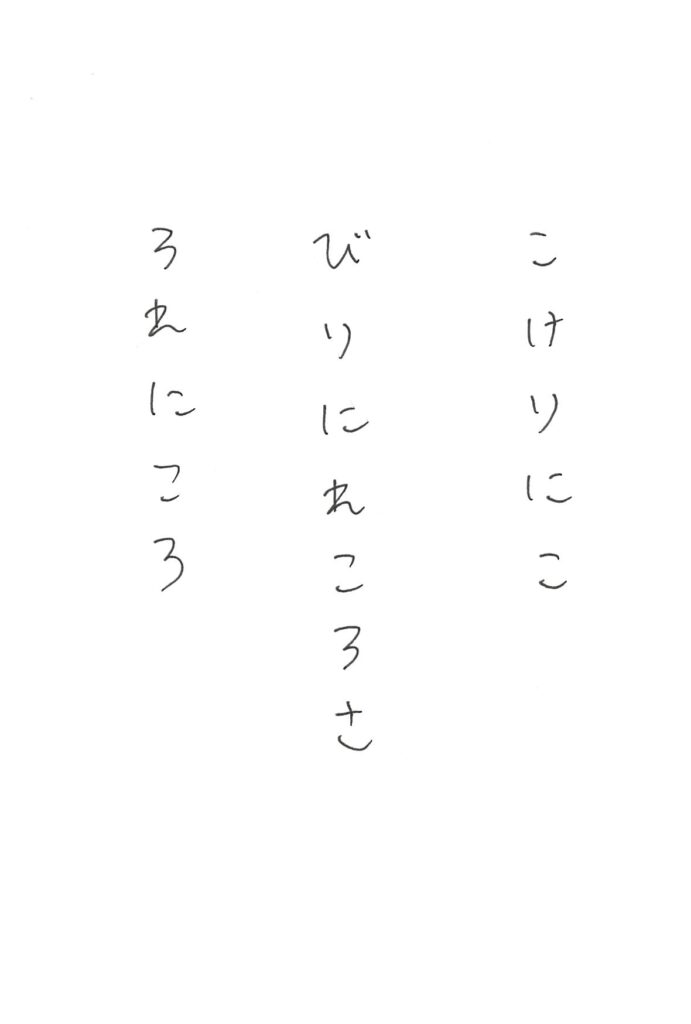 こけりにこ
びりにれころさ
ろれにころ